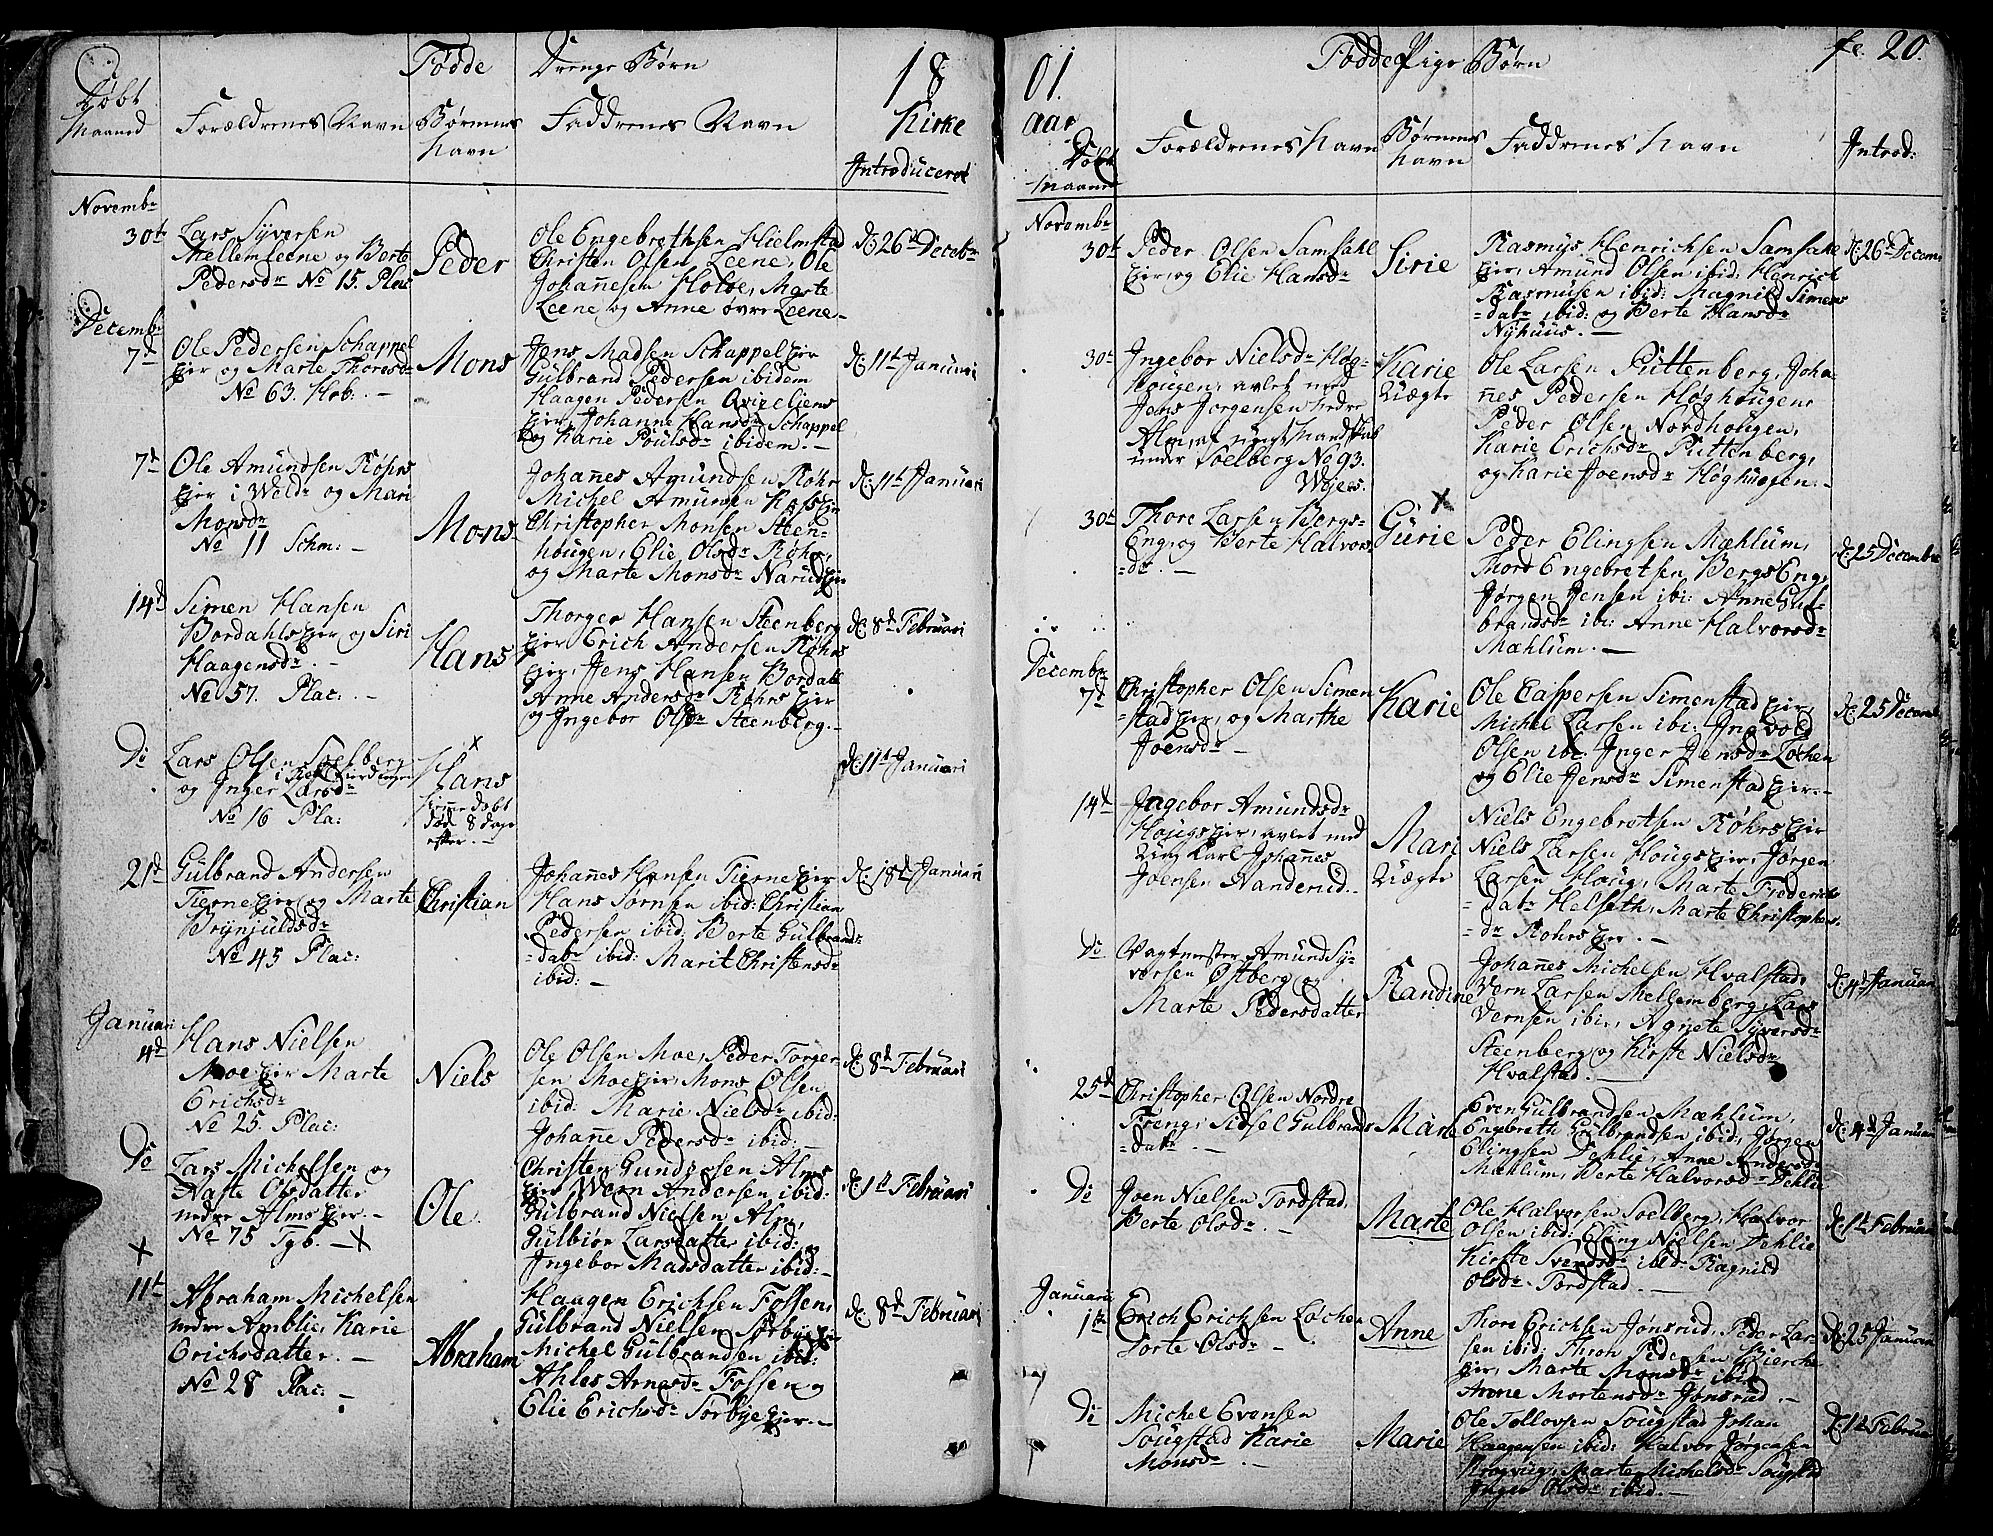 Fødde Drenge Børn 18
Døbt
Maaned
Forældrenes Navn
Børnenes
Navn
Faddrenes Navn
Kirke
Introduceret
Novembr
30te
Lars Syversen
Mellem Leene og Berte
Pedersdr No 15. Plac
Peder
Ole Engebrethsen Hielmstad
Christen Olsen Leene, Ole
Johannesen Holve, Marte
Leene og Anne øvre Leene
d: 26d Decebr
Decembr
7d
Ole Pedersen Schappel
Ejer og Marte Thoresdr
No 63. Hob: —
Mons
Jens Madsen Schappel Ejer
Gulbrand Pedersen ibidem
Haagen Pedersen
Ejer, Johanne Hansdr Schappel
og Karie Poulsdr ibidem. —
d: 11d Januari
7d
Ole Amundsen Røhrs
Ejer i Weldr og Mari
Monsdr
No 11 Schm: —
Mons
Johannes Amundsen Røhr
Michel Amunsen
Christopher Monsen Steen-
hougen, Elie Olsdr Røhrs,
og Marte Monsdr Narud Ejer
d: 11d Januari
14d
Simen Hansen
Bordahls Ejer og Siri
Haagensdr. —
No 57. Plac: —
Hans
Thorger Hansen Steenberg
Ejer Erich Andersen Røhrs
Ejer, Jens Hansen Bordahl
Anne Andersdr Røhrs Ejer
og Ingebor Olsdr Steenberg. —
d: 8d Februari
Do
Lars Olsen Soelberg
og Inger Larsdr
No 16 Pla:
Hans
hiemedøbt
død 8 dage
efter. —
d: 11d Januari
21d
Gulbrand Andersen
Tierne Ejer og Marte
Brynjuldsdr
No 45 Plac:
Christian
Johannes Hansen Tierne Ejer
Hans Tornsen ibid: Christian
Pedersen ibid: Berte Gulbrands-
=datr ibid: Marit Christensdr
ibid: —
d: 18d Januari
Januari
4d
Hans Nielsen
Moe Ejer Marte
Erichsdr
No 25. Plac:
Niels
Ole Olsen Moe, Peder Torger-
sen Moe Ejer, Mons Olsen
ibid: Marie Nielsdr ibid:
Johanne Pedersdr ibid: —
d: 8d Februari
Do
Lars Michelsen og
Marte Olsdatter
nedre Alms Ejer. —
No 75 Tgb. — X
Ole
Christen Gundersen Alms
Ejer Wern Andersen ibid:
Gulbrand Nielsen Alm,
Gulbiør Larsdatter ibid:
Ingebor Madsdatter ibid: —
d: 1d Februari
X
11d
Abraham Michelsen
nedre Amblie, Karie
Erichsdatter. —
No 28 Plac: —
Abraham
Haagen Erichsen Fossen,
Gulbrand Nielsen Sørbye Ejer
Michel Gulbrandsen ibid:
Ahles Arnesdr Fossen og
Elie Erichsdr Sørbye Ejer. —
d: 8d Februari
01. Fødde Pige Børn fc. 20.
aar
Døbt
Maaned
Forældrenes Navn
Børnenes
Navn
Faddrenes Navn
Introd:
Novembr
30t
Peder Olsen Samsahl
Ejer, og Elie Hansdr
Sirie
Rasmus Henrichsen Samsahl
Ejer, Amund Olsen ibid: Henrich
Rasmusen ibid: Magnild Simens
=datr ibid: og Berte Hansdr
Nyhuus. —
d: 26d Decem:
30t
Ingebor Nielsdr Høg-
hougen, avlet med
Jens Jorgensen nedre
Alm, af
under Soelberg No 93.
Karie
Uægte
Ole Larsen Puttenberg, Joha
nnes Pedersen Høghougen
Peder Olsen Nordhougen,
Karie Erichsdr Puttenberg,
og Karie Joensdr Høghougen. —
30t
Thore Larsen Bergs-
Eng, og Berte Halvors
=dr. —
X
Gurie
Peder Elingsen Mæhlum,
Thord Engebretsen BergsEng,
Jørgen Jensen ibi: Anne Gul-
brandsdr ibi: Anne Halvorsdr
Mæhlum. —
d: 25 Decembr
Decembr
7d
Christopher Olsen Simen
=stad Ejer, og Marthe
Joensdr —
Karie
Ole Caspersen Simenstad Ejer,
Michel Larsen ibi: Ingvold
Olsen ibi: Inger Jensdr Løchen
og Elie Jensdr Simenstad Ejer. —
d: 25 Decem
14d
Ingebor Amundsdr
Hougs Ejer, avlet med
Ung Karl Johannes
Joensen Nanderud. —
Mari
Uægte
Niels Engebretsen Røhrs Ejer
Niels Larsen Hougs Ejer, Jørgen
Larsen Houg, Marte Frederichs
=datr Helseth, Marte Christophers
=dr Røhrs Ejer. —
Do
Vagtmester Amund Sy-
versen Østberg og
Marte Pedersdatter
Randine
Johannes Michelsen Hvalstad,
Vern Larsen Mellemberg, Lars
Vernsen ibi:, Agnete Syversdr
Steenberg og Kirste Nielsdr
Hvalstad. —
d: 4d Januari
25d
Christopher Olsen Nordre
Freng, Sidsel Gulbrands
=datr —
Marte
Even Gulbrandsen Mæhlum,
Engebreth Gulbrandsen ibid, Jørgen
Elingsen Dehlie, Anne Andersdr
Mæhlum, Berte Halvorsdr Dehlie
d: 4d Januari
Do
Joen Nielsen Tordstad,
Berte Olsdr —
Marte
Ole Halvorsen Soelberg, Halvor
Olsen ibid: Eling Nielsen Dehlie
Kirste Svendsdr ibid: Ragnild
Olsdr. Tordstad. —
d: 1d Februari
Januari
1te
Erich Erichsen Løchen
Dorte Olsdr —
Anne
Thore Erichsen Jønsrud, Peder Lar-
sen ibid: Thron Pedersen Bierche
Ejer, Marte Monsdr ibid:
Anne Mortensdr Jønsrud. —
d: 25 Januari
Do
Michel Evensen
Sougstad Karie
Monsdr —
Marie
Ole Tollovsen Sougstad Johan
Haagensen ibid: Halvor Jørgensen
Marte Michelsdr Sougstad
Inger Olsdr ibid. —
d: 1d Februar